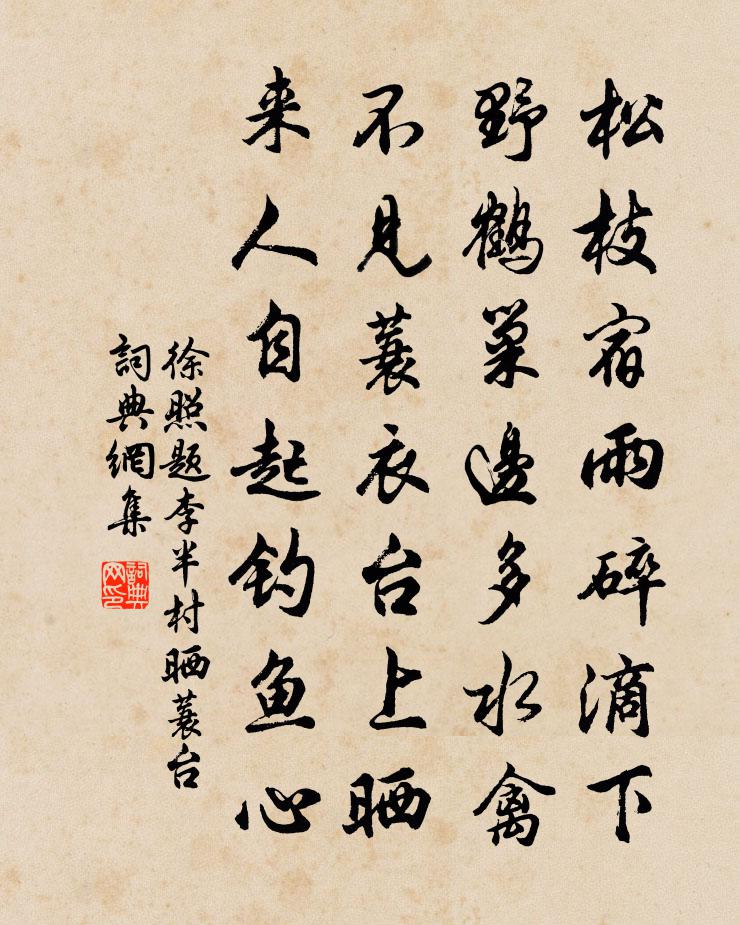 松枝宿雨碎滴下
野鶴巢邊多水禽
不見蓑衣台上晒
来人自起钓鱼心
徐照题李半村晒蓑台
詞典網集
詞典网印